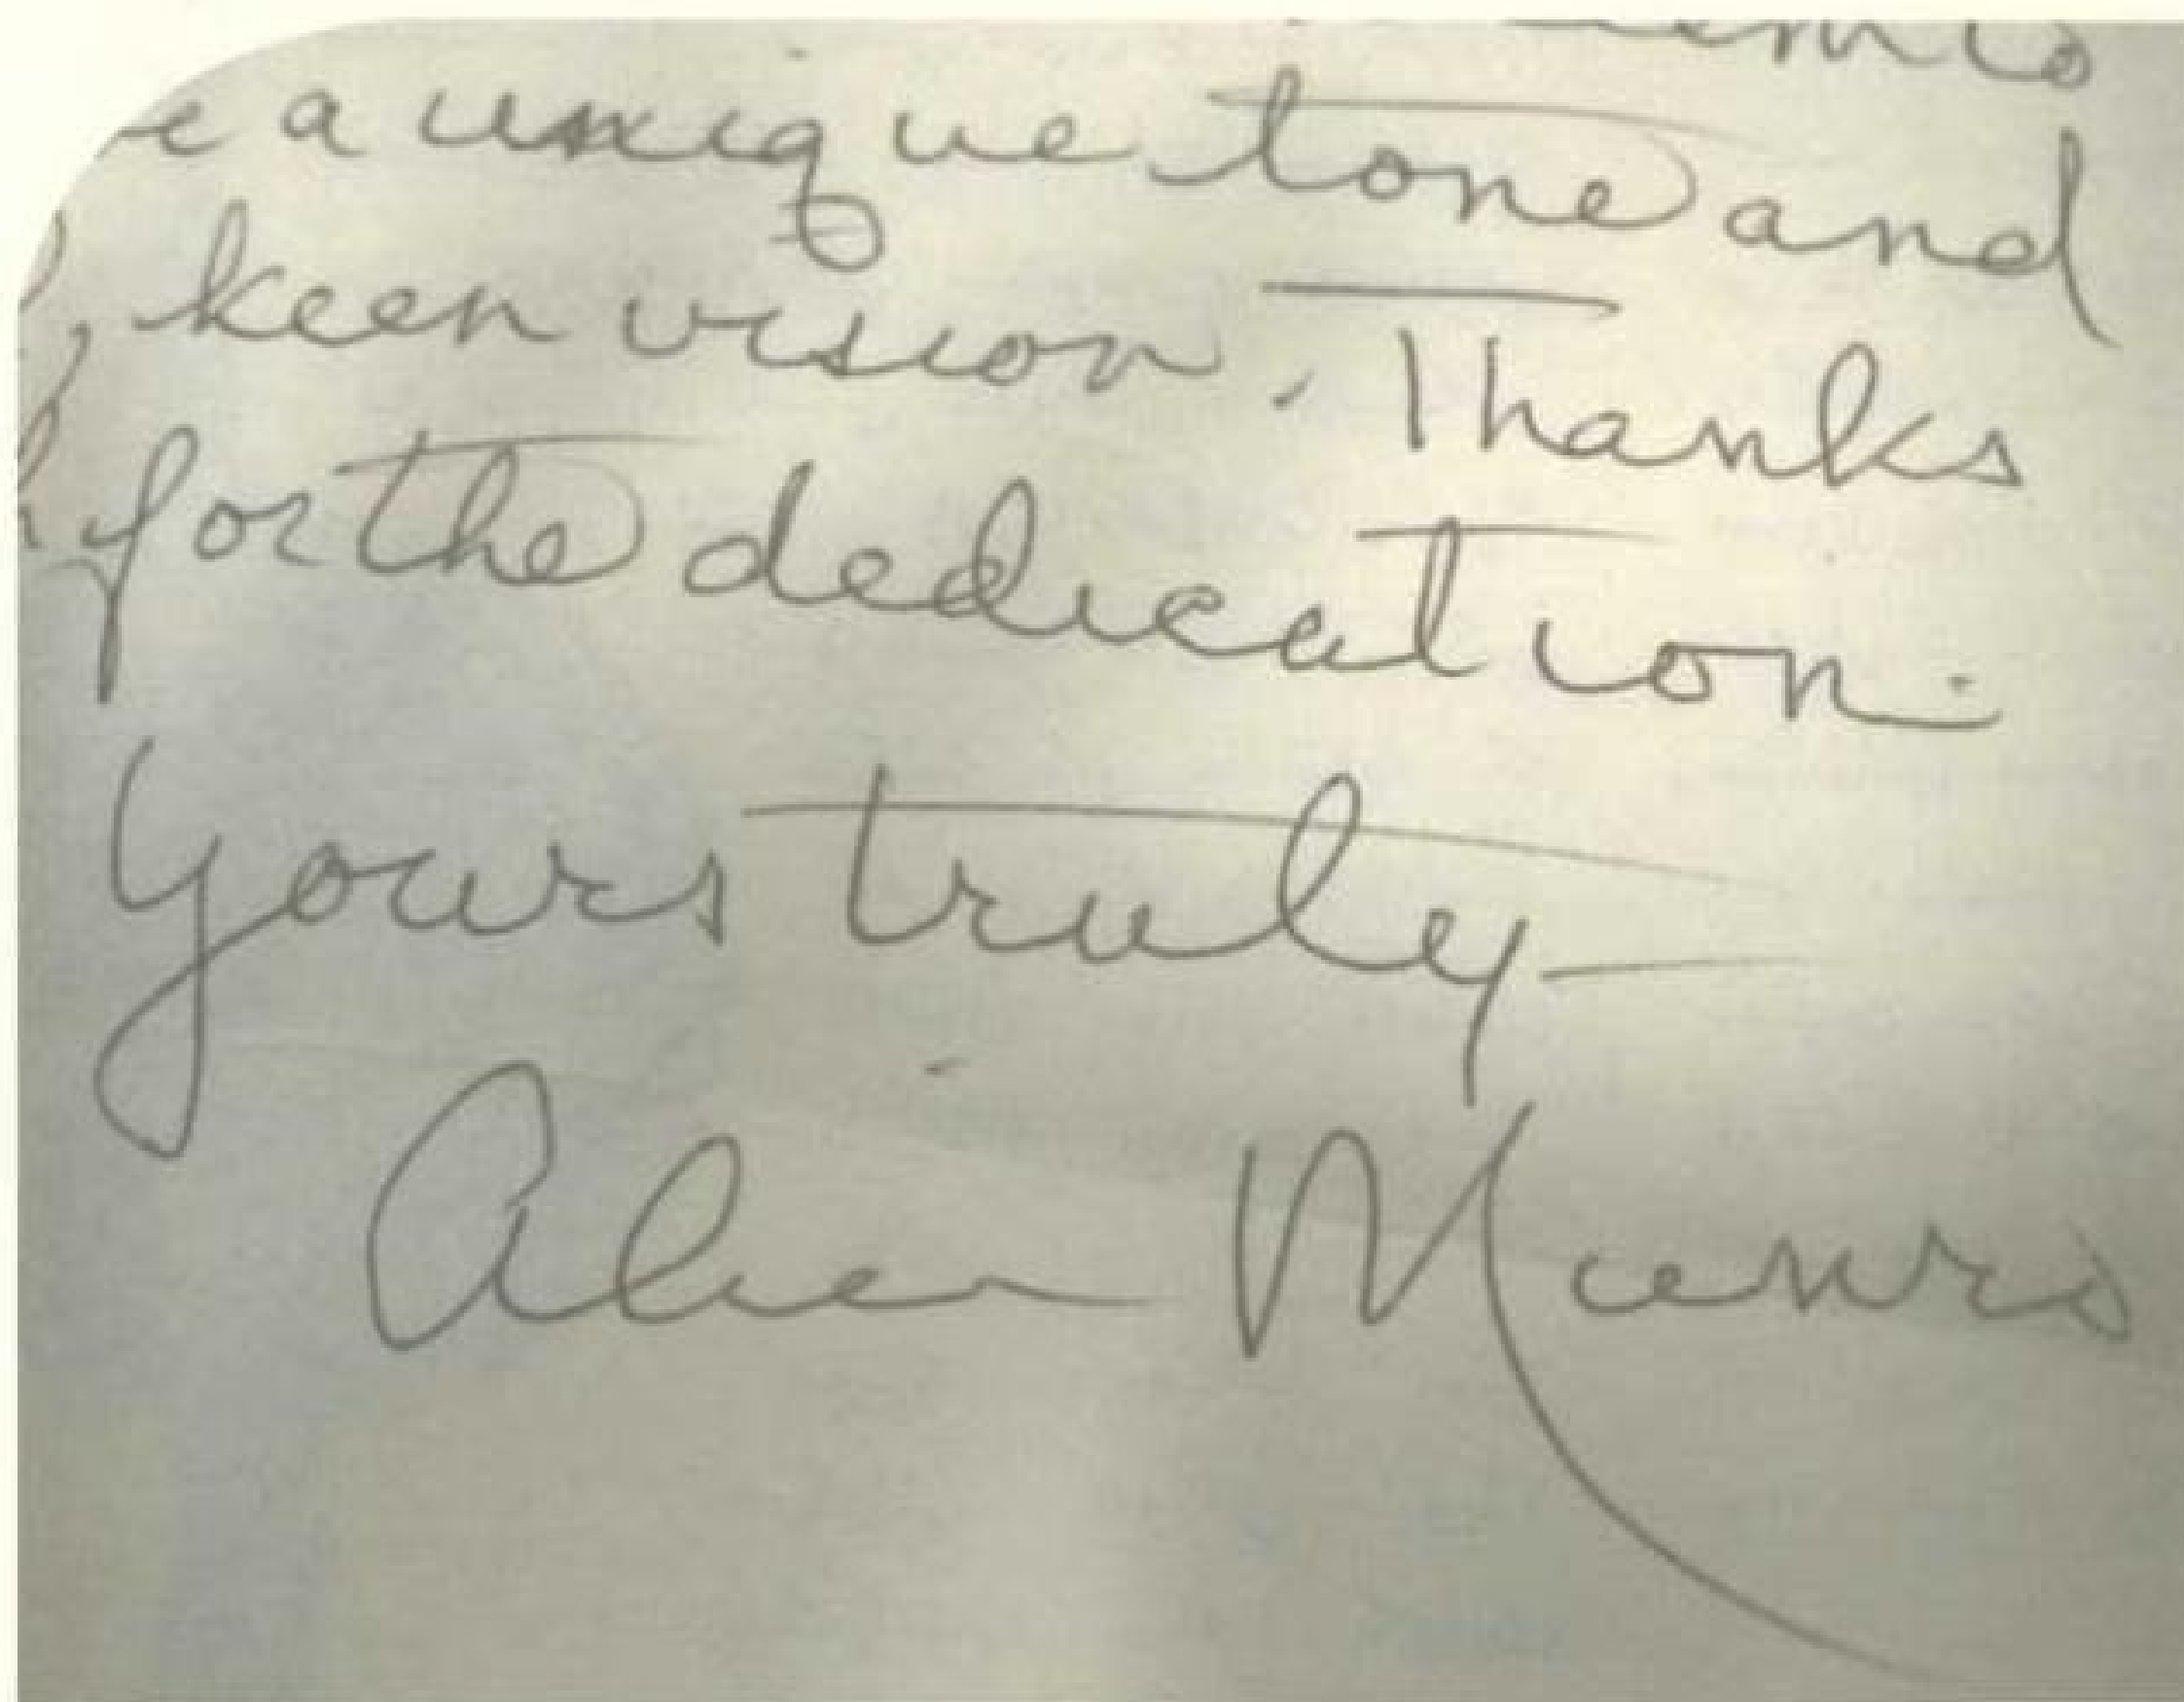 a unique tone and
, keen vision. Thanks
for the dedication.
Yours truly—
Alice Munro